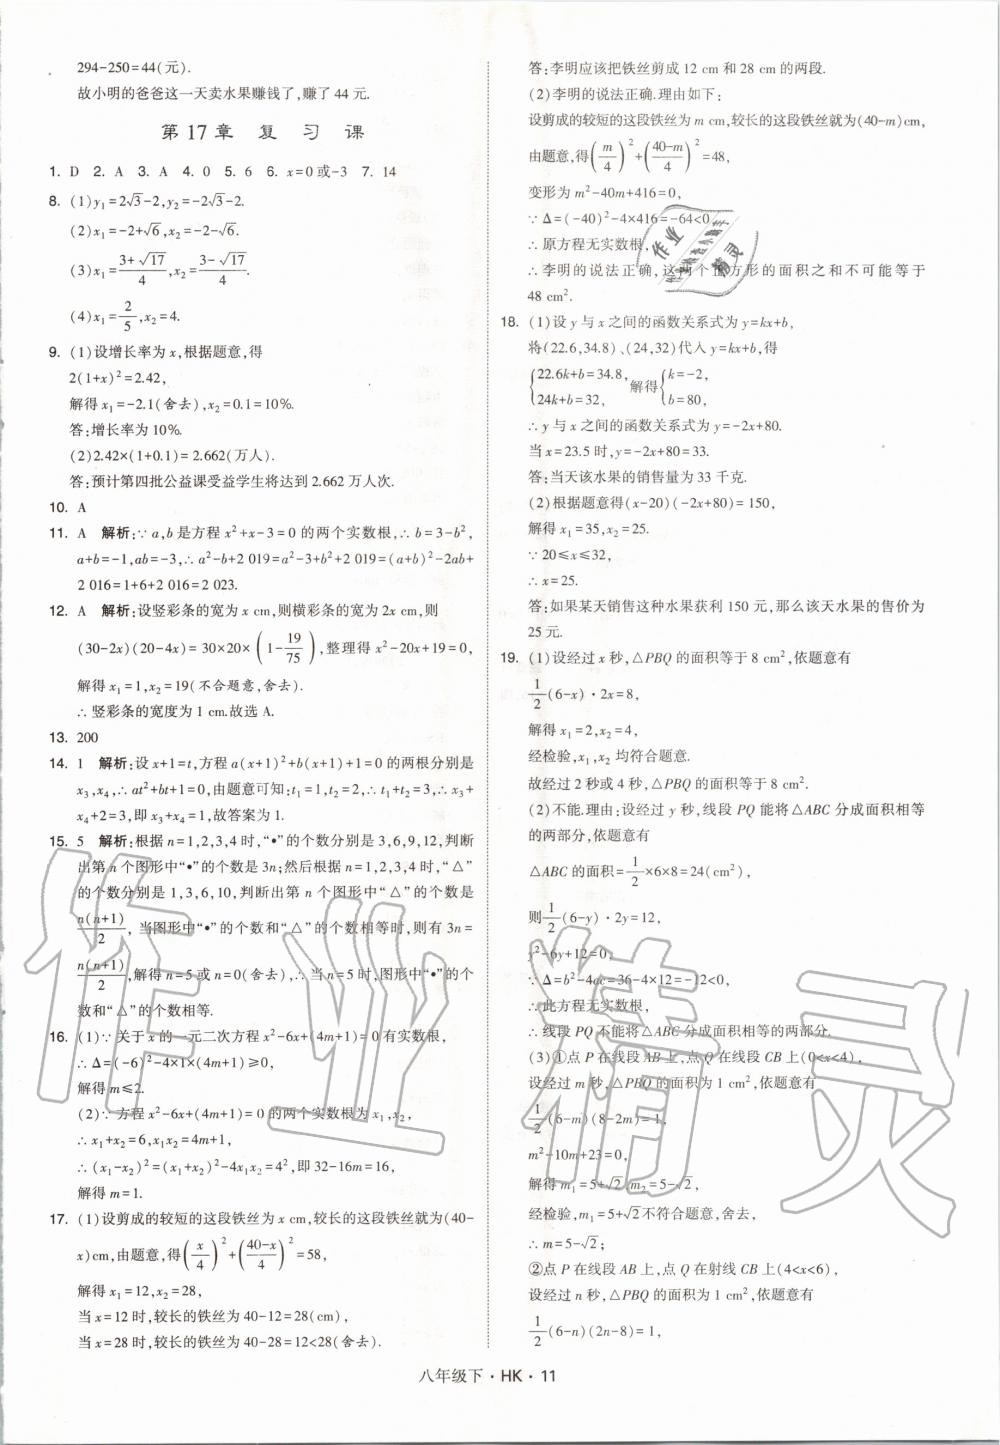 294-250=44(元).
故小明的爸爸这一天卖水果赚钱了,赚了 44 元.
第 17 章 复 习 课
1. D 2. A 3. A 4. 0 5. 6 6. x=0或-3 7. 14
8. (1)y₁=2√3-2,y₂=-2√3-2.
(2)x₁=-2+√6,x₂=-2-√6.
(3)x₁=(3+√17)/4,x₂=(3-√17)/4.
(4)x₁=2/5,x₂=4.
9. (1)设增长率为 x,根据题意,得
2(1+x)²=2.42,
解得 x₁=-2.1(舍去),x₂=0.1=10%.
答:增长率为 10%.
(2)2.42×(1+0.1)=2.662(万人).
答:预计第四批公益课受益学生将达到 2.662 万人次.
10. A
11. A 解析:∵a,b 是方程 x²+x-3=0 的两个实数根,∴b=3-b²,
a+b=-1,ab=-3,∴a²-b+2 019=a²-3+b²+2 019=(a+b)²-2ab+
2 016=1+6+2 016=2 023.
12. A 解析:设竖彩条的宽为 x cm,则横彩条的宽为 2x cm,则
(30-2x)(20-4x)=30×20×(1-19/75),整理得 x²-20x+19=0,
解得 x₁=1,x₂=19(不合题意,舍去).
∴竖彩条的宽度为 1 cm.故选 A.
13. 200
14. 1 解析:设 x+1=t,方程 a(x+1)²+b(x+1)+1=0 的两根分别是
x₃,x₄,∴at²+bt+1=0,由题意可知:t₁=1,t₂=2,∴t₁+t₂=3,∴x₃+
x₄+2=3,即 x₃+x₄=1,故答案为 1.
15. 5 解析:根据 n=1,2,3,4 时,“•”的个数分别是 3,6,9,12,判断
出第 n 个图形中“•”的个数是 3n;然后根据 n=1,2,3,4 时,“△”
的个数分别是 1,3,6,10,判断出第 n 个图形中“△”的个数是
n(n+1)/2, 当图形中“•”的个数和“△”的个数相等时,则有 3n=
n(n+1)/2,解得 n=5 或 n=0(舍去),∴当 n=5 时,图形中“•”的个
数和“△”的个数相等.
16. (1)∵关于 x 的一元二次方程 x²-6x+(4m+1)=0 有实数根,
∴Δ=(-6)²-4×1×(4m+1)≥0,
解得 m≤2.
(2)∵方程 x²-6x+(4m+1)=0 的两个实数根为 x₁,x₂,
∴x₁+x₂=6,x₁x₂=4m+1,
∴(x₁-x₂)²=(x₁+x₂)²-4x₁x₂=4²,即 32-16m=16,
解得 m=1.
17. (1)设剪成的较短的这段铁丝为 x cm,较长的这段铁丝就为(40-
x)cm,由题意,得(x/4)²+((40-x)/4)²=58,
解得 x₁=12,x₂=28,
当 x=12 时,较长的铁丝为 40-12=28(cm),
当 x=28 时,较长的铁丝为 40-28=12<28(舍去).
答:李明应该把铁丝剪成 12 cm 和 28 cm 的两段.
(2)李明的说法正确.理由如下:
设剪成的较短的这段铁丝为 m cm,较长的这段铁丝就为(40-m)cm,
由题意,得(m/4)²+((40-m)/4)²=48,
变形为 m²-40m+416=0,
∵Δ=(-40)²-4×416=-64<0,
∴原方程无实数根,
∴李明的说法正确,这两个正方形的面积之和不可能等于
48 cm².
18. (1)设 y 与 x 之间的函数关系式为 y=kx+b,
将(22.6,34.8)、(24,32)代入 y=kx+b,得
{22.6k+b=34.8, 24k+b=32, 解得{k=-2, b=80,
∴y 与 x 之间的函数关系式为 y=-2x+80.
当 x=23.5 时,y=-2x+80=33.
答:当天该水果的销售量为 33 千克.
(2)根据题意得(x-20)(-2x+80)=150,
解得 x₁=35,x₂=25.
∵20≤x≤32,
∴x=25.
答:如果某天销售这种水果获利 150 元,那么该天水果的售价为
25 元.
19. (1)设经过 x 秒,△PBQ 的面积等于 8 cm²,依题意有
1/2(6-x)·2x=8,
解得 x₁=2,x₂=4,
经检验,x₁,x₂ 均符合题意.
故经过 2 秒或 4 秒,△PBQ 的面积等于 8 cm².
(2)不能.理由:设经过 y 秒,线段 PQ 能将△ABC 分成面积相等
的两部分,依题意有
△ABC 的面积=1/2×6×8=24(cm²),
则1/2(6-y)·2y=12,
y²-6y+12=0,
∵Δ=b²-4ac=36-4×12=-12<0,
∴此方程无实数根,
∴线段 PQ 不能将△ABC 分成面积相等的两部分.
(3)①点 P 在线段 AB 上,点 Q 在线段 CB 上(0<x<4),
设经过 m 秒,△PBQ 的面积为 1 cm²,依题意有
1/2(6-m)(8-2m)=1,
m²-10m+23=0,
解得 m₁=5+√2,m₂=5-√2,
经检验,m₁=5+√2不符合题意,舍去,
∴m=5-√2;
②点 P 在线段 AB 上,点 Q 在射线 CB 上(4<x<6),
设经过 n 秒,△PBQ 的面积为 1 cm²,依题意有
1/2(6-n)(2n-8)=1,
八年级下·HK·11
作业精灵
作业
精灵